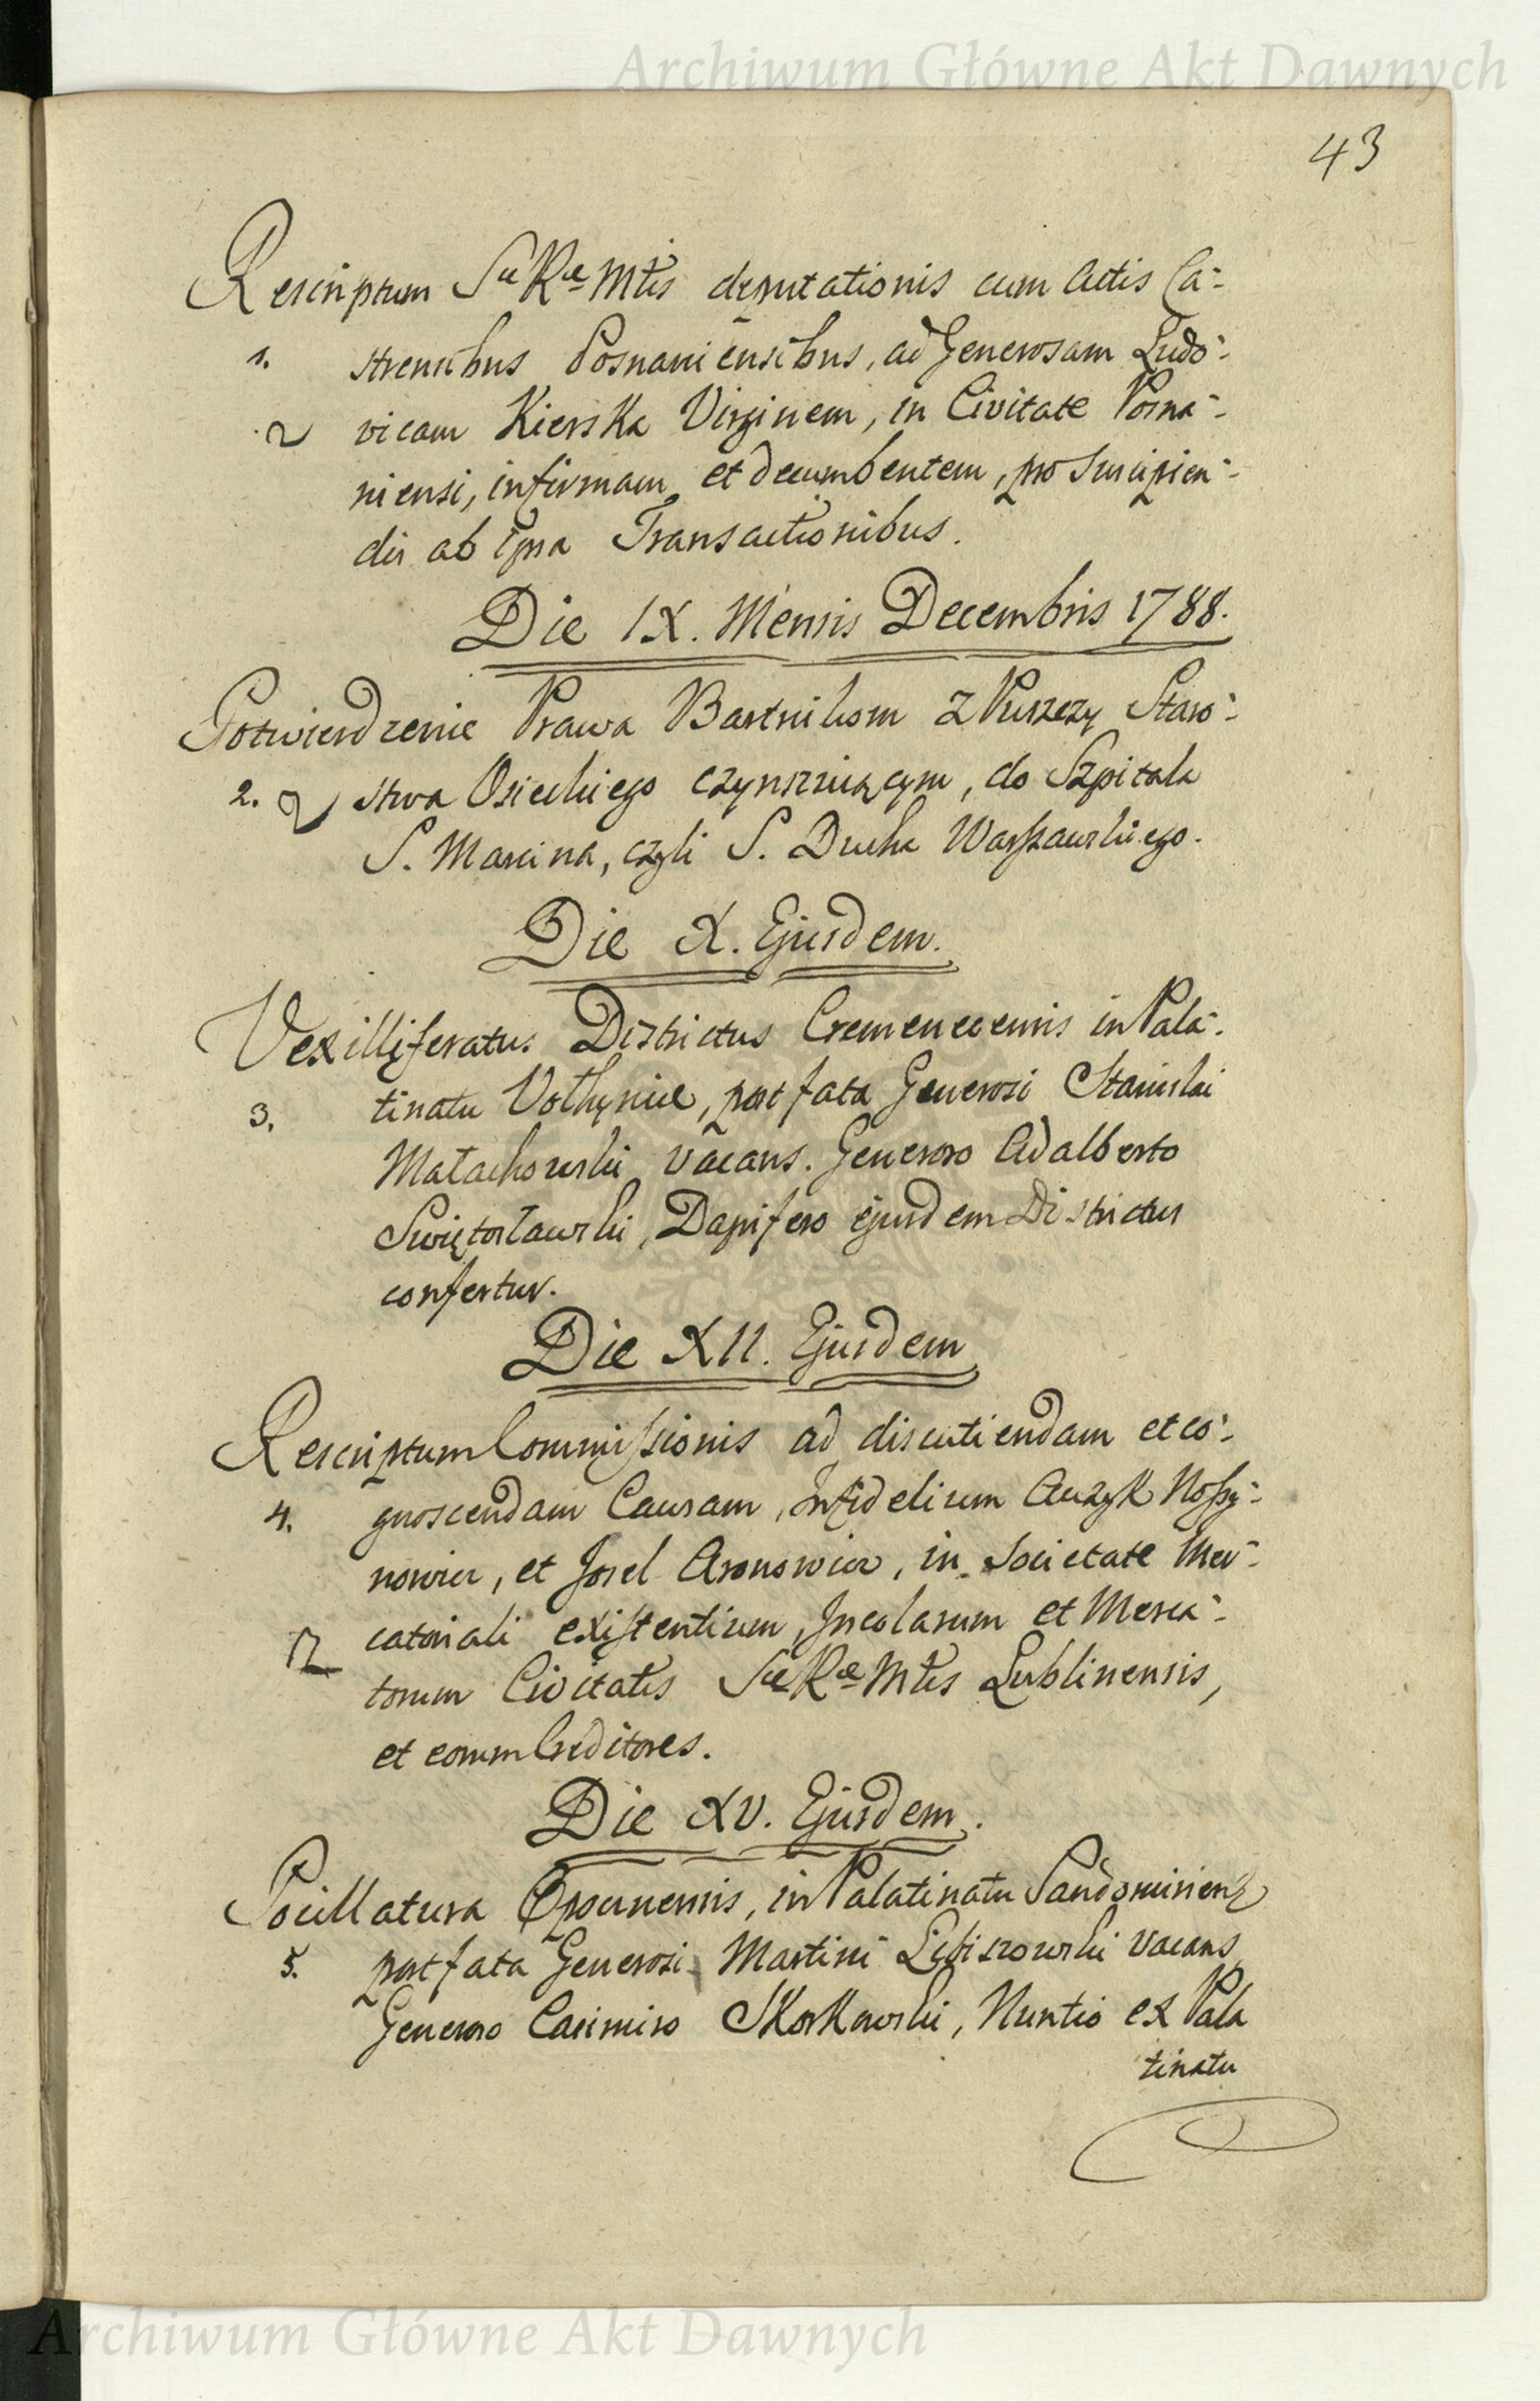 Archiwum Główne Akt Dawnych
43
Rescriptum Sæ Ræ Mtis deputationis cum Actis Ca-
1. strensibus Posnaniensibus, ad Generosam Ludo-
vicam Kierska Virginem, in Civitate Posna-
niensi, infirmam et decumbentem, pro suscipien-
dis ab ipsa Transactionibus.
Die IX. Mensis Decembris 1788.
Potwierdzenie Prawa Bartnikom z Puszczy Staro-
2. stwa Osieckiego czynszuiącym, do Szpitala
S. Marcina, czyli S. Ducha Warszawskiego.
Die X. Ejusdem.
Vexilliferatus Districtus Cremenecensis in Pala-
3. tinatu Volhyniæ, post fata Generosi Stanislai
Małachowski vacans. Generoso Adalberto
Swiętosławski, Dapifero ejusdem Districtus
confertur.
Die XII. Ejusdem
Rescriptum Commissionis ad discutiendam et co-
4. gnoscendam Causam, Infidelium Auzyk Noszy-
nowicz, et Josel Aronowicz, in Societate Mer-
catoriali existentium, Incolarum et Merca-
torum Civitatis Sæ Ræ Mtis Lublinensis,
et eorum Creditores.
Die XV. Ejusdem.
Pocillatura Opocnensis, in Palatinatu Sandomirien
5. post fata Generosi Martini Libiszowski vacans
Generoso Casimiro Skorkowski, Nuntio ex Pala
tinatu
Archiwum Główne Akt Dawnych